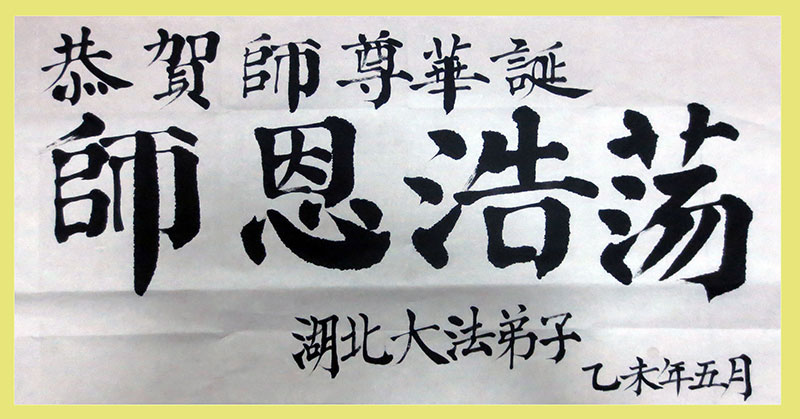 恭賀師尊華誕
師恩浩荡
湖北大法弟子
乙未年五月